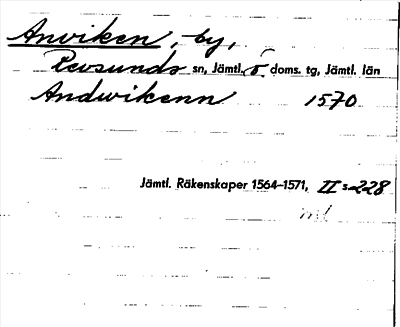 Anviken, by,
Revsunds sn, Jämtl. ö. doms. tg, Jämtl. län
Andwikenn 1570
Jämtl. Räkenskaper 1564–1571, II s. 228